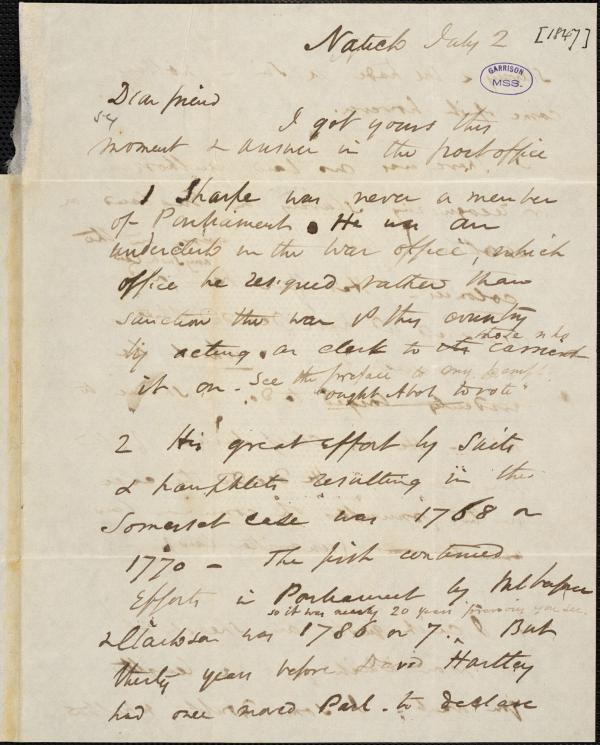 Natick July 2 [1847]
GARRISON
MSS.
Dear friend
I got yours this
moment & answer in the post office
1 Sharpe was never a member
of Parliament. He was an
underclerk in the war office, which
office he resigned rather than
sanction the war vs this country
by acting as clerk to those who
carried
it on. See the preface to my pamph.
"ought Abol. to vote"
2 His great effort by suits
& pamphlets resulting in the
Somerset case was 1768 or
1770 - The first continued
efforts in Parliament by Wilberforce
so it was nearly 20 years previous you see.
& Clarkson was 1786 or 7. But
thirty years before David Hartley
had once moved Parl. to declare